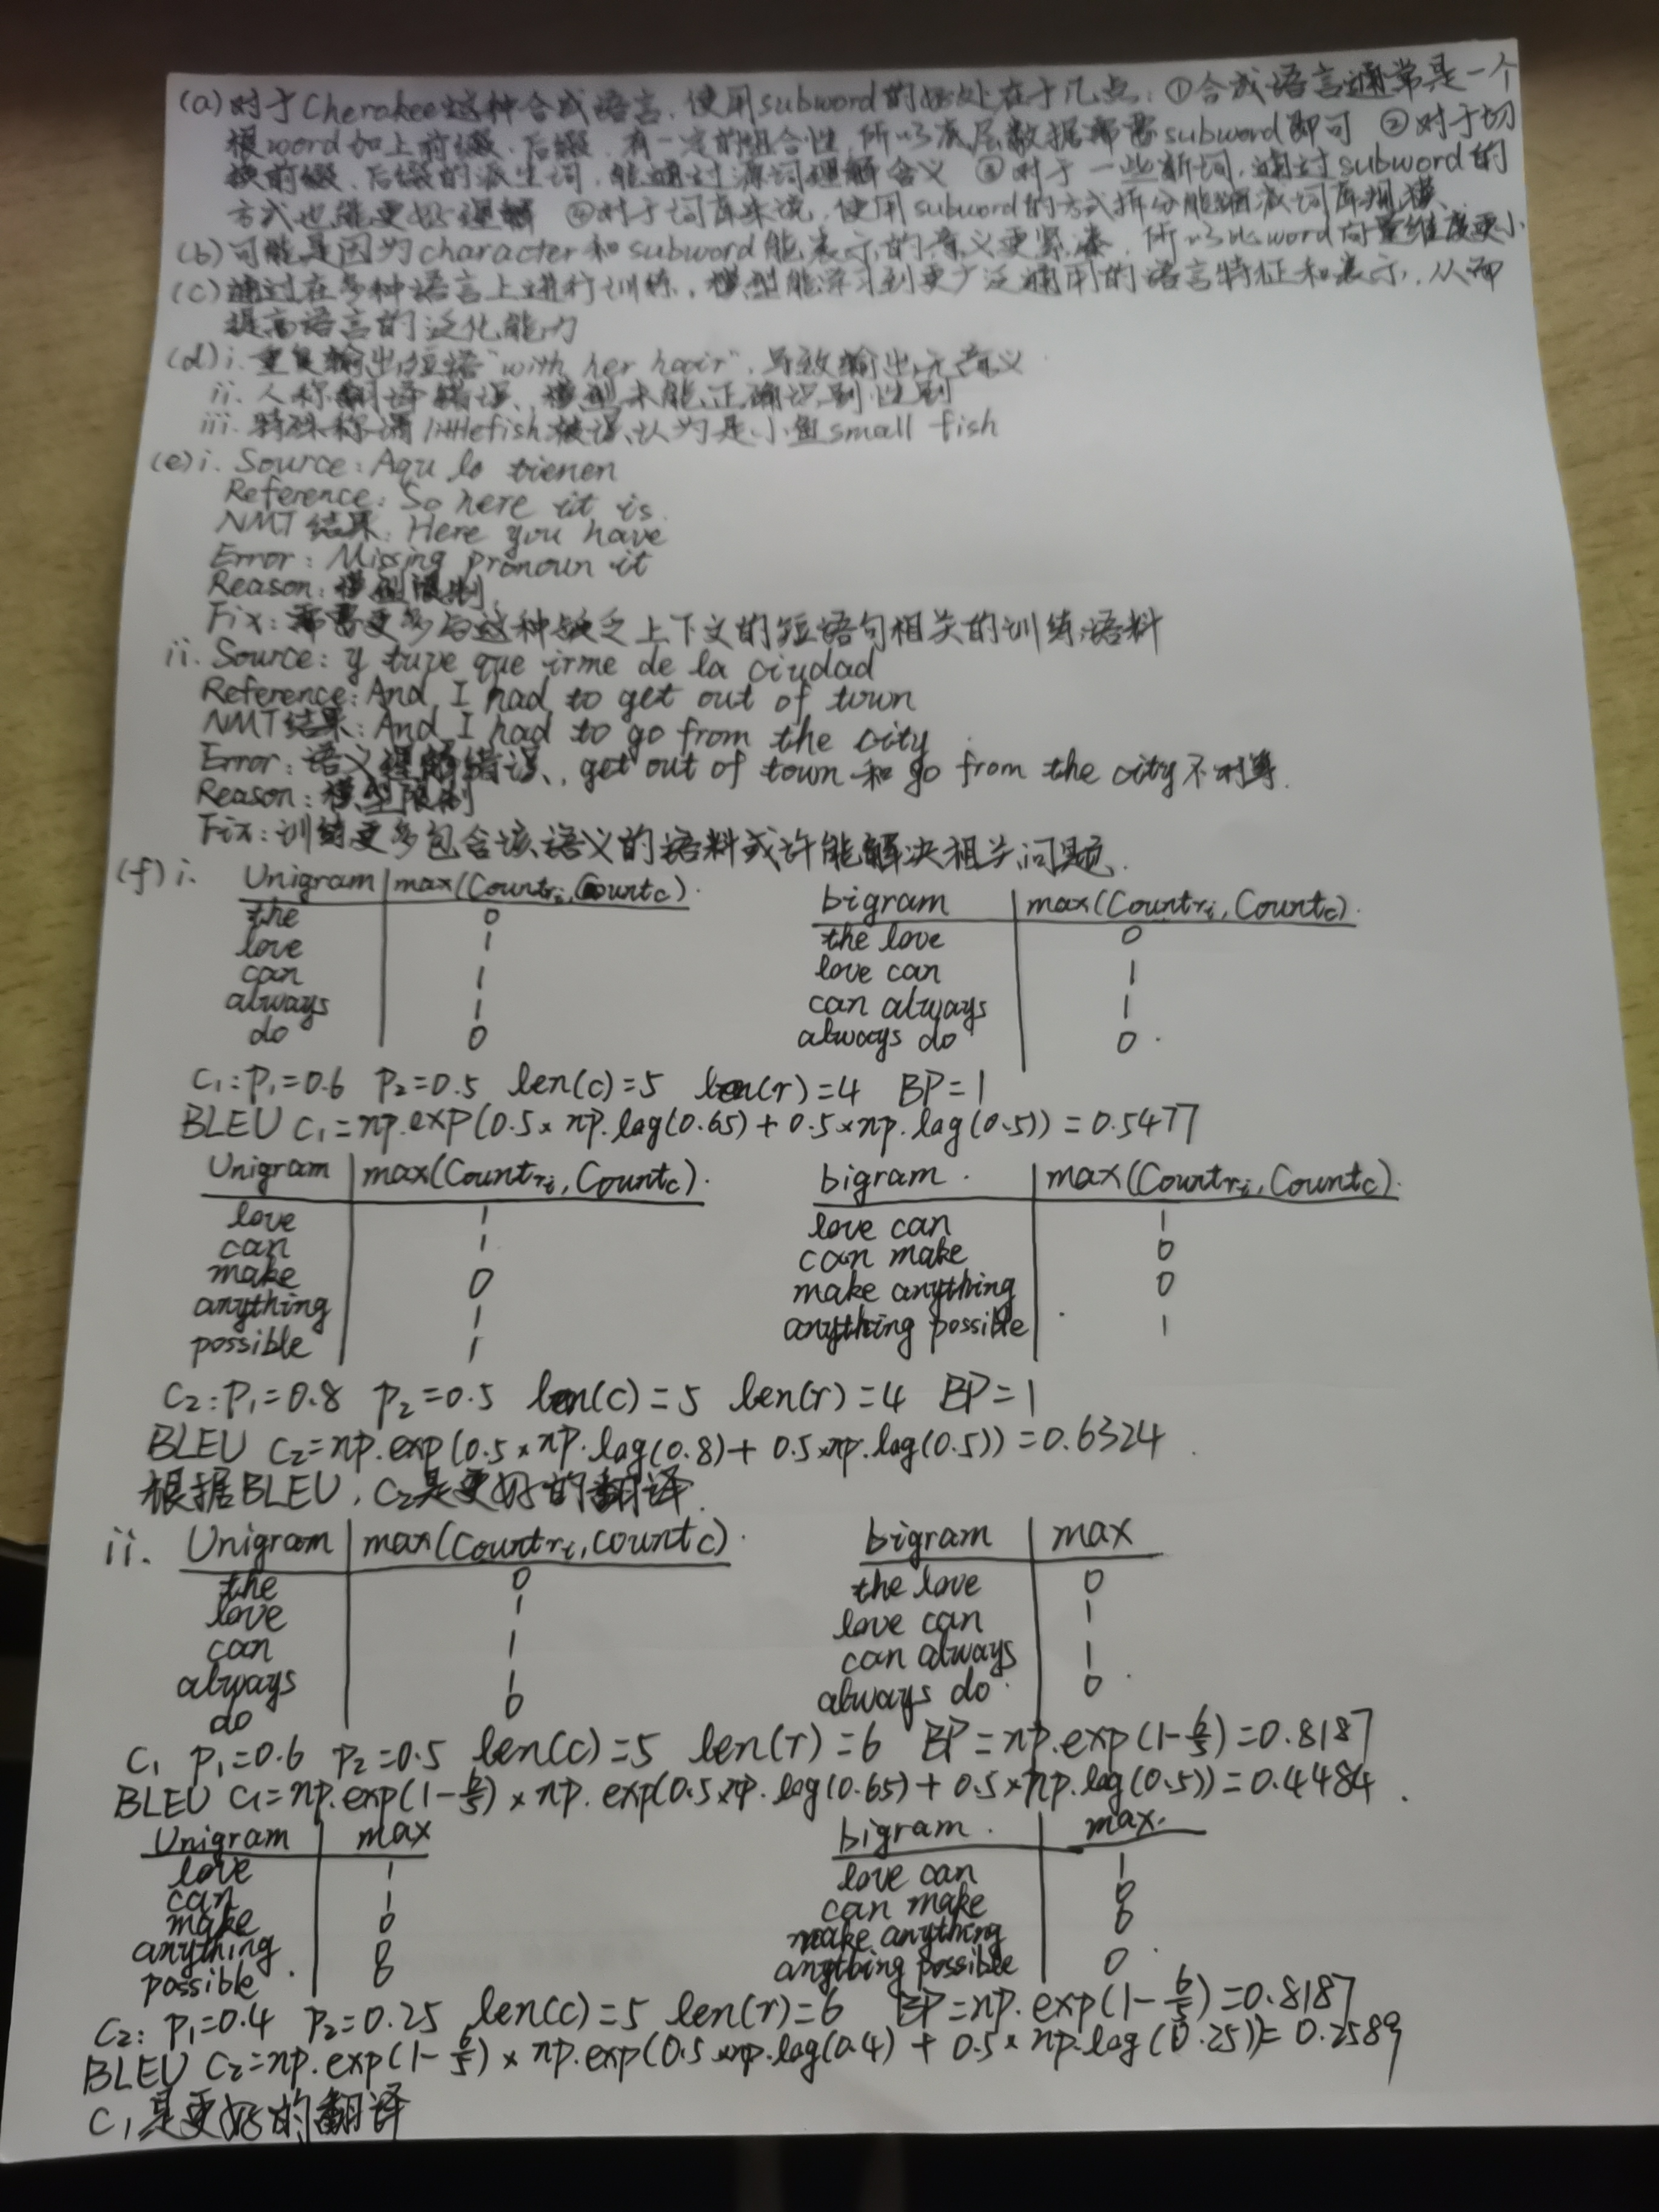 (a) 对于Cherokee这种合成语言, 使用subword的好处在于几点: ①合成语言通常是一个
根word加上前缀、后缀, 有一定的组合性, 所以底层数据需要subword即可 ②对于切
换前缀、后缀的派生词, 能通过源词理解含义 ③对于一些新词, 通过subword的
方式也能更好理解 ④对于词库来说, 使用subword的方式拆分能缩减词库规模
(b) 可能是因为character和subword能表示的意义更紧凑, 所以比word向量维度更小
(c) 通过在多种语言上进行训练, 模型能学习到更广泛通用的语言特征和表示, 从而
提高语言的泛化能力
(d) i. 重复输出短语"with her hair", 导致输出无意义
ii. 人称翻译错误、模型未能正确识别性别
iii. 特殊称谓littlefish被误认为是小鱼small fish
(e) i. Source: Aqu lo tienen
Reference: So here it is
NMT结果: Here you have
Error: Missing pronoun it
Reason: 模型限制
Fix: 需要更多与这种缺乏上下文的短语句相关的训练语料
ii. Source: y tuve que irme de la ciudad
Reference: And I had to get out of town
NMT结果: And I had to go from the city
Error: 语义理解错误, get out of town 和 go from the city 不对等.
Reason: 模型限制
Fix: 训练更多包含该语义的语料或许能解决相关问题.
(f) i. Unigram max(Countri, Countc). bigram max(Countri, Countc).
the 0 the love 0
love 1 love can 1
can 1 can always 1
always 1 always do 0
do 0
C1: P1=0.6 P2=0.5 len(c)=5 len(r)=4 BP=1
BLEU C1=np.exp(0.5×np.log(0.65)+0.5×np.log(0.5))=0.5477
Unigram max(Countri, Countc). bigram. max(Countri, Countc).
love 1 love can 1
can 1 can make 0
make 0 make anything 0
anything 1 anything possible 1
possible 1
C2: P1=0.8 P2=0.5 len(c)=5 len(r)=4 BP=1
BLEU C2=np.exp(0.5×np.log(0.8)+0.5×np.log(0.5))=0.6324
根据BLEU, C2是更好的翻译.
ii. Unigram max(Countri, Countc) bigram max
the 0 the love 0
love 1 love can 1
can 1 can always 1
always 1 always do 0
do 0
C1 P1=0.6 P2=0.5 len(c)=5 len(r)=6 BP=np.exp(1-6/5)=0.8187
BLEU C1=np.exp(1-6/5)×np.exp(0.5×np.log(0.65)+0.5×np.log(0.5))=0.4484.
Unigram max bigram. max.
love 1 love can 1
can 1 can make 0
make 0 make anything 0
anything 0 anything possible 0
possible 0
C2: P1=0.4 P2=0.25 len(c)=5 len(r)=6 BP=np.exp(1-6/5)=0.8187
BLEU C2=np.exp(1-6/5)×np.exp(0.5×np.log(0.4)+0.5×np.log(0.25))=0.2589
C1是更好的翻译